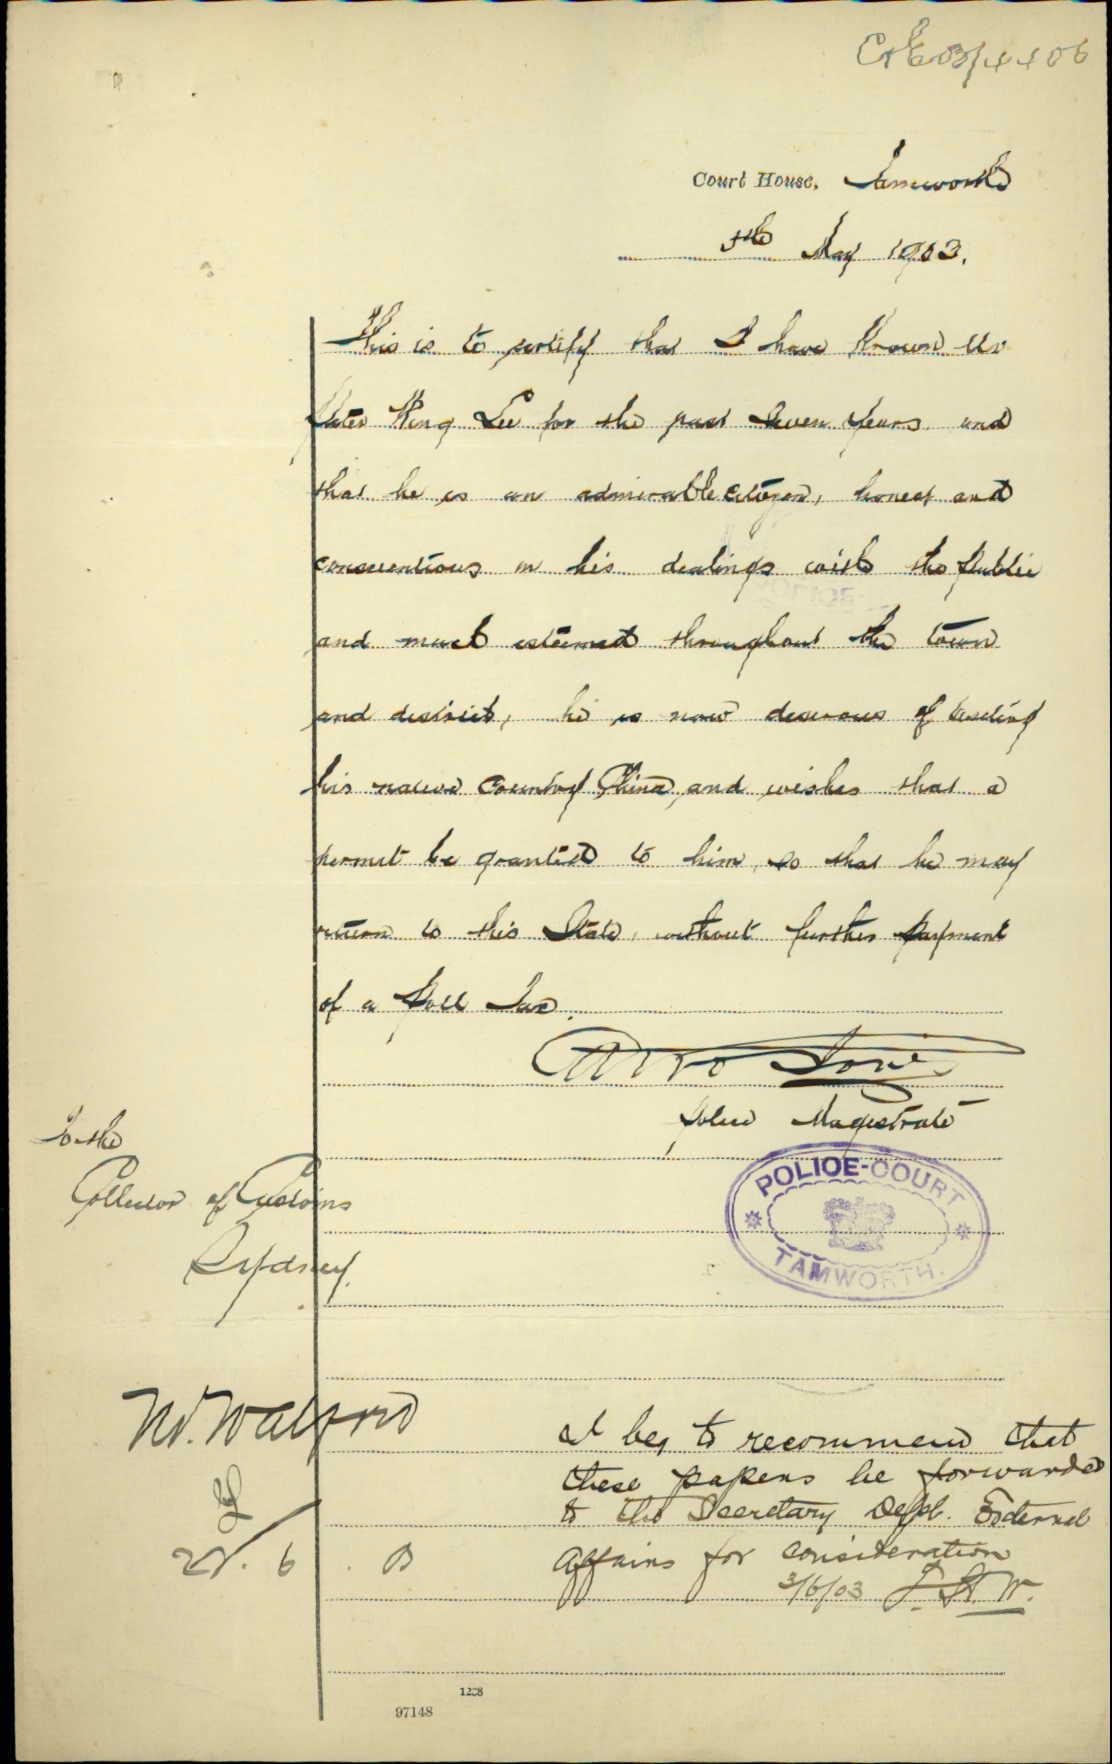 Court House, Tamworth
5th May 1903.
This is to certify that I have Known Mr
Peter King Lee for the past Seven Years and
that he is an admirable citizen, honest and
conscientious in his dealings with the Public
and much esteemed throughout the town
and district, he is now desirous of
his native Country China, and wishes that a
permit be granted to him, so that he may
return to this State, without further Payment
of a Poll Tax.
Police Magistrate
POLICE-COURT
TAMWORTH.
To the
Collector of Customs
Sydney.
I beg to recommend that
these papers be forwarded
to the Secretary Dept. External
Affairs for consideration
3/6/03
97148